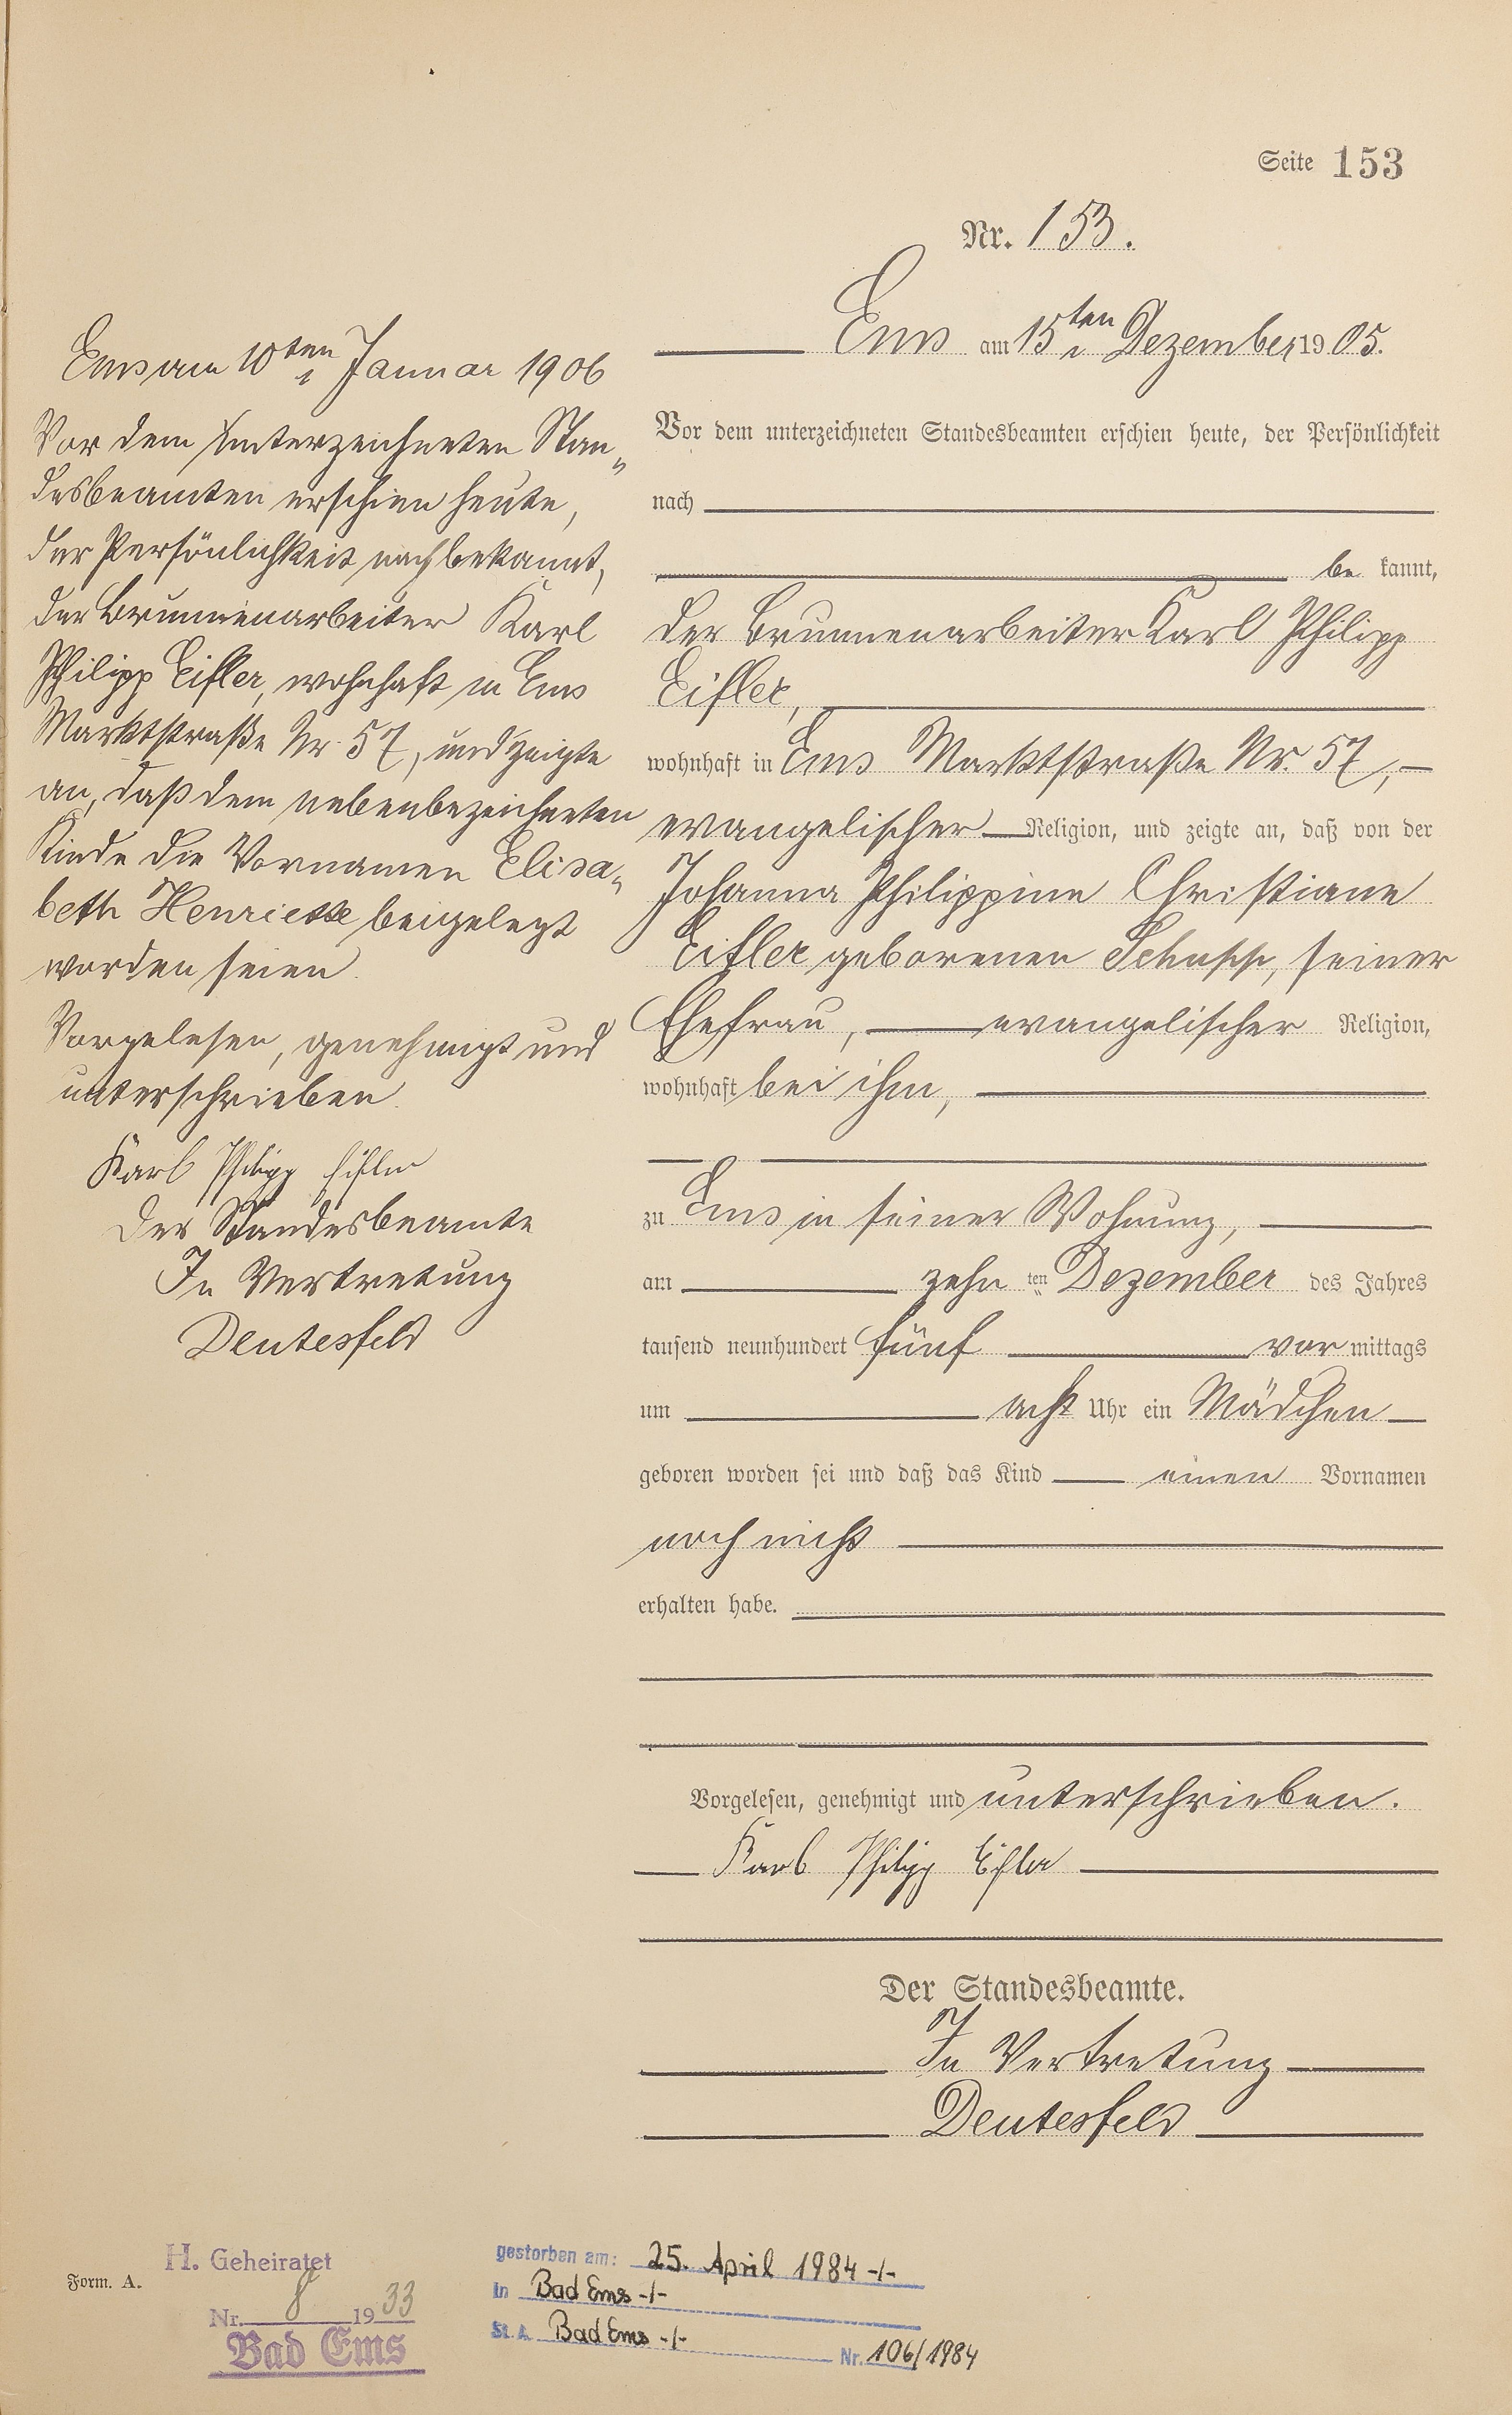 Seite 153
Nr. 153.
Ems am 15ten Dezember 1905.
Vor dem unterzeichneten Standesbeamten erschien heute, der Persönlichkeit
nach
be kannt,
der Brunnenarbeiter Karl Philipp
Eifler,
wohnhaft in Ems Marktstraße Nr. 57,
evangelischer Religion, und zeigte an, daß von der
Johanna Philippine Christiane
Eifler geborenen Schupp, seiner
Ehefrau, evangelischer Religion,
wohnhaft bei ihm,
zu Ems in seiner Wohnung,
am zehn ten Dezember des Jahres
tausend neunhundert fünf vor mittags
um acht Uhr ein Mädchen
geboren worden sei und daß das Kind einen Vornamen
noch nicht
erhalten habe.
Vorgelesen, genehmigt und unterschrieben.
Karl Philipp Eifler
Der Standesbeamte.
In Vertretung
Deutesfeld
Ems am 10ten Januar 1906
Vor dem unterzeichneten Stan„
desbeamten erschien heute,
der Persönlichkeit nach bekannt,
der Brunnenarbeiter Karl
Philipp Eifler, wohnhaft in Ems
Marktstraße Nr. 57, und zeigte
an, daß dem nebenbezeichneten
Kinde die Vornamen Elisa„
beth Henriette beigelegt
worden seien.
Vorgelesen, genehmigt und
unterschrieben.
Karl Philipp Eifler
Der Standesbeamte
In Vertretung
Deutesfeld
Form. A.
H. Geheiratet
Nr. 8 1933
Bad Ems
gestorben am: 25. April 1984 -/-
in Bad Ems -/-
St. A. Bad Ems -/-
Nr. 106/1984